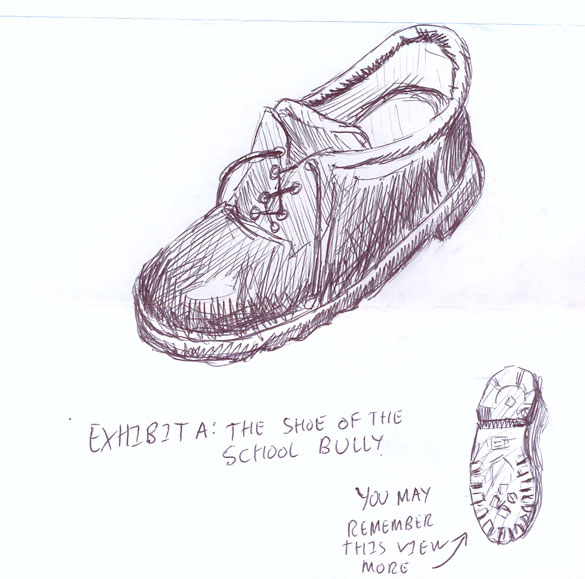 EXHIBIT A: THE SHOE OF THE
SCHOOL BULLY
YOU MAY
REMEMBER
THIS VIEW
MORE